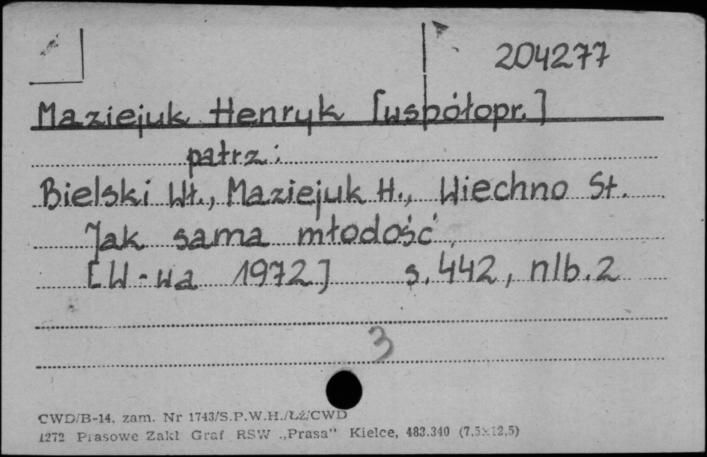 204277
Maziejuk Henryk [współopr.]
patrz:
Bielski Wł., Maziejuk H., Wiechno St.
Jak sama młodość.
[W-wa 1972] s. 442, nlb. 2
3
CWD/B-14. zam. Nr 1743/S.P.W.H./ŁŻ/CWD
1272 Prasowe Zakł Graf RSW „Prasa” Kielce, 483.340 (7,5×12,5)